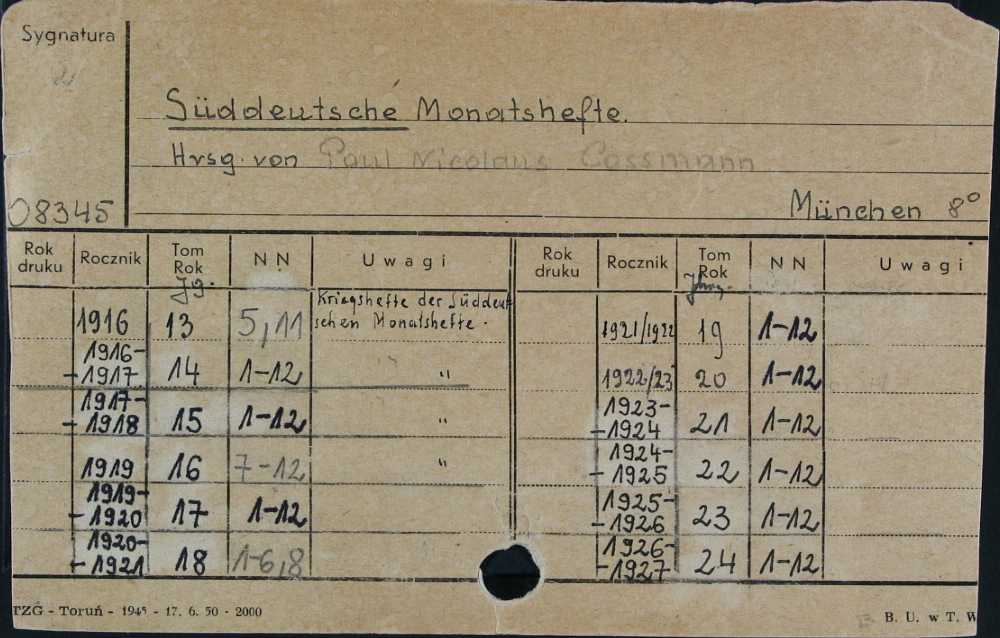 Sygnatura
Süddeutsche Monatshefte.
Hrsg. von Paul Nicolaus Cossmann
08345 München 8°
Rok druku Rocznik Tom Rok Jg. NN Uwagi
1916 13 5,11 Kriegshefte der Süddeutschen Monatshefte.
1916-1917 14 1-12 "
1917-1918 15 1-12 "
1919 16 7-12 "
1919-1920 17 1-12
1920-1921 18 1-6,8
Rok druku Rocznik Tom Rok Jhrg. NN Uwagi
1921/1922 19 1-12
1922/23 20 1-12
1923-1924 21 1-12
1924-1925 22 1-12
1925-1926 23 1-12
1926-1927 24 1-12
TZG - Toruń - 1945 - 17. 6. 50 - 2000
B. U. w T. W